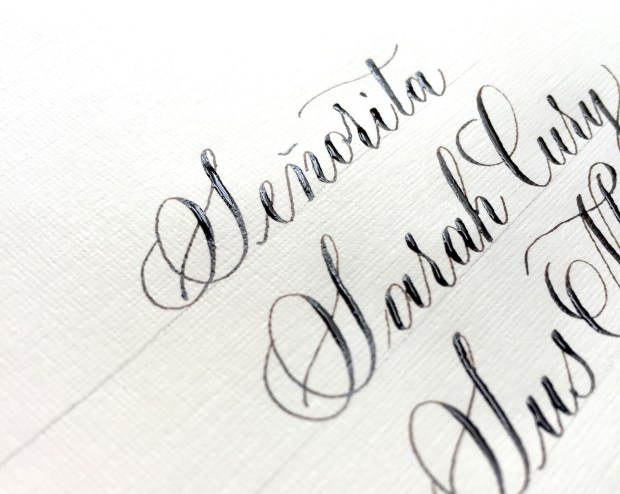 Señorita
Sarah Cury
Sus